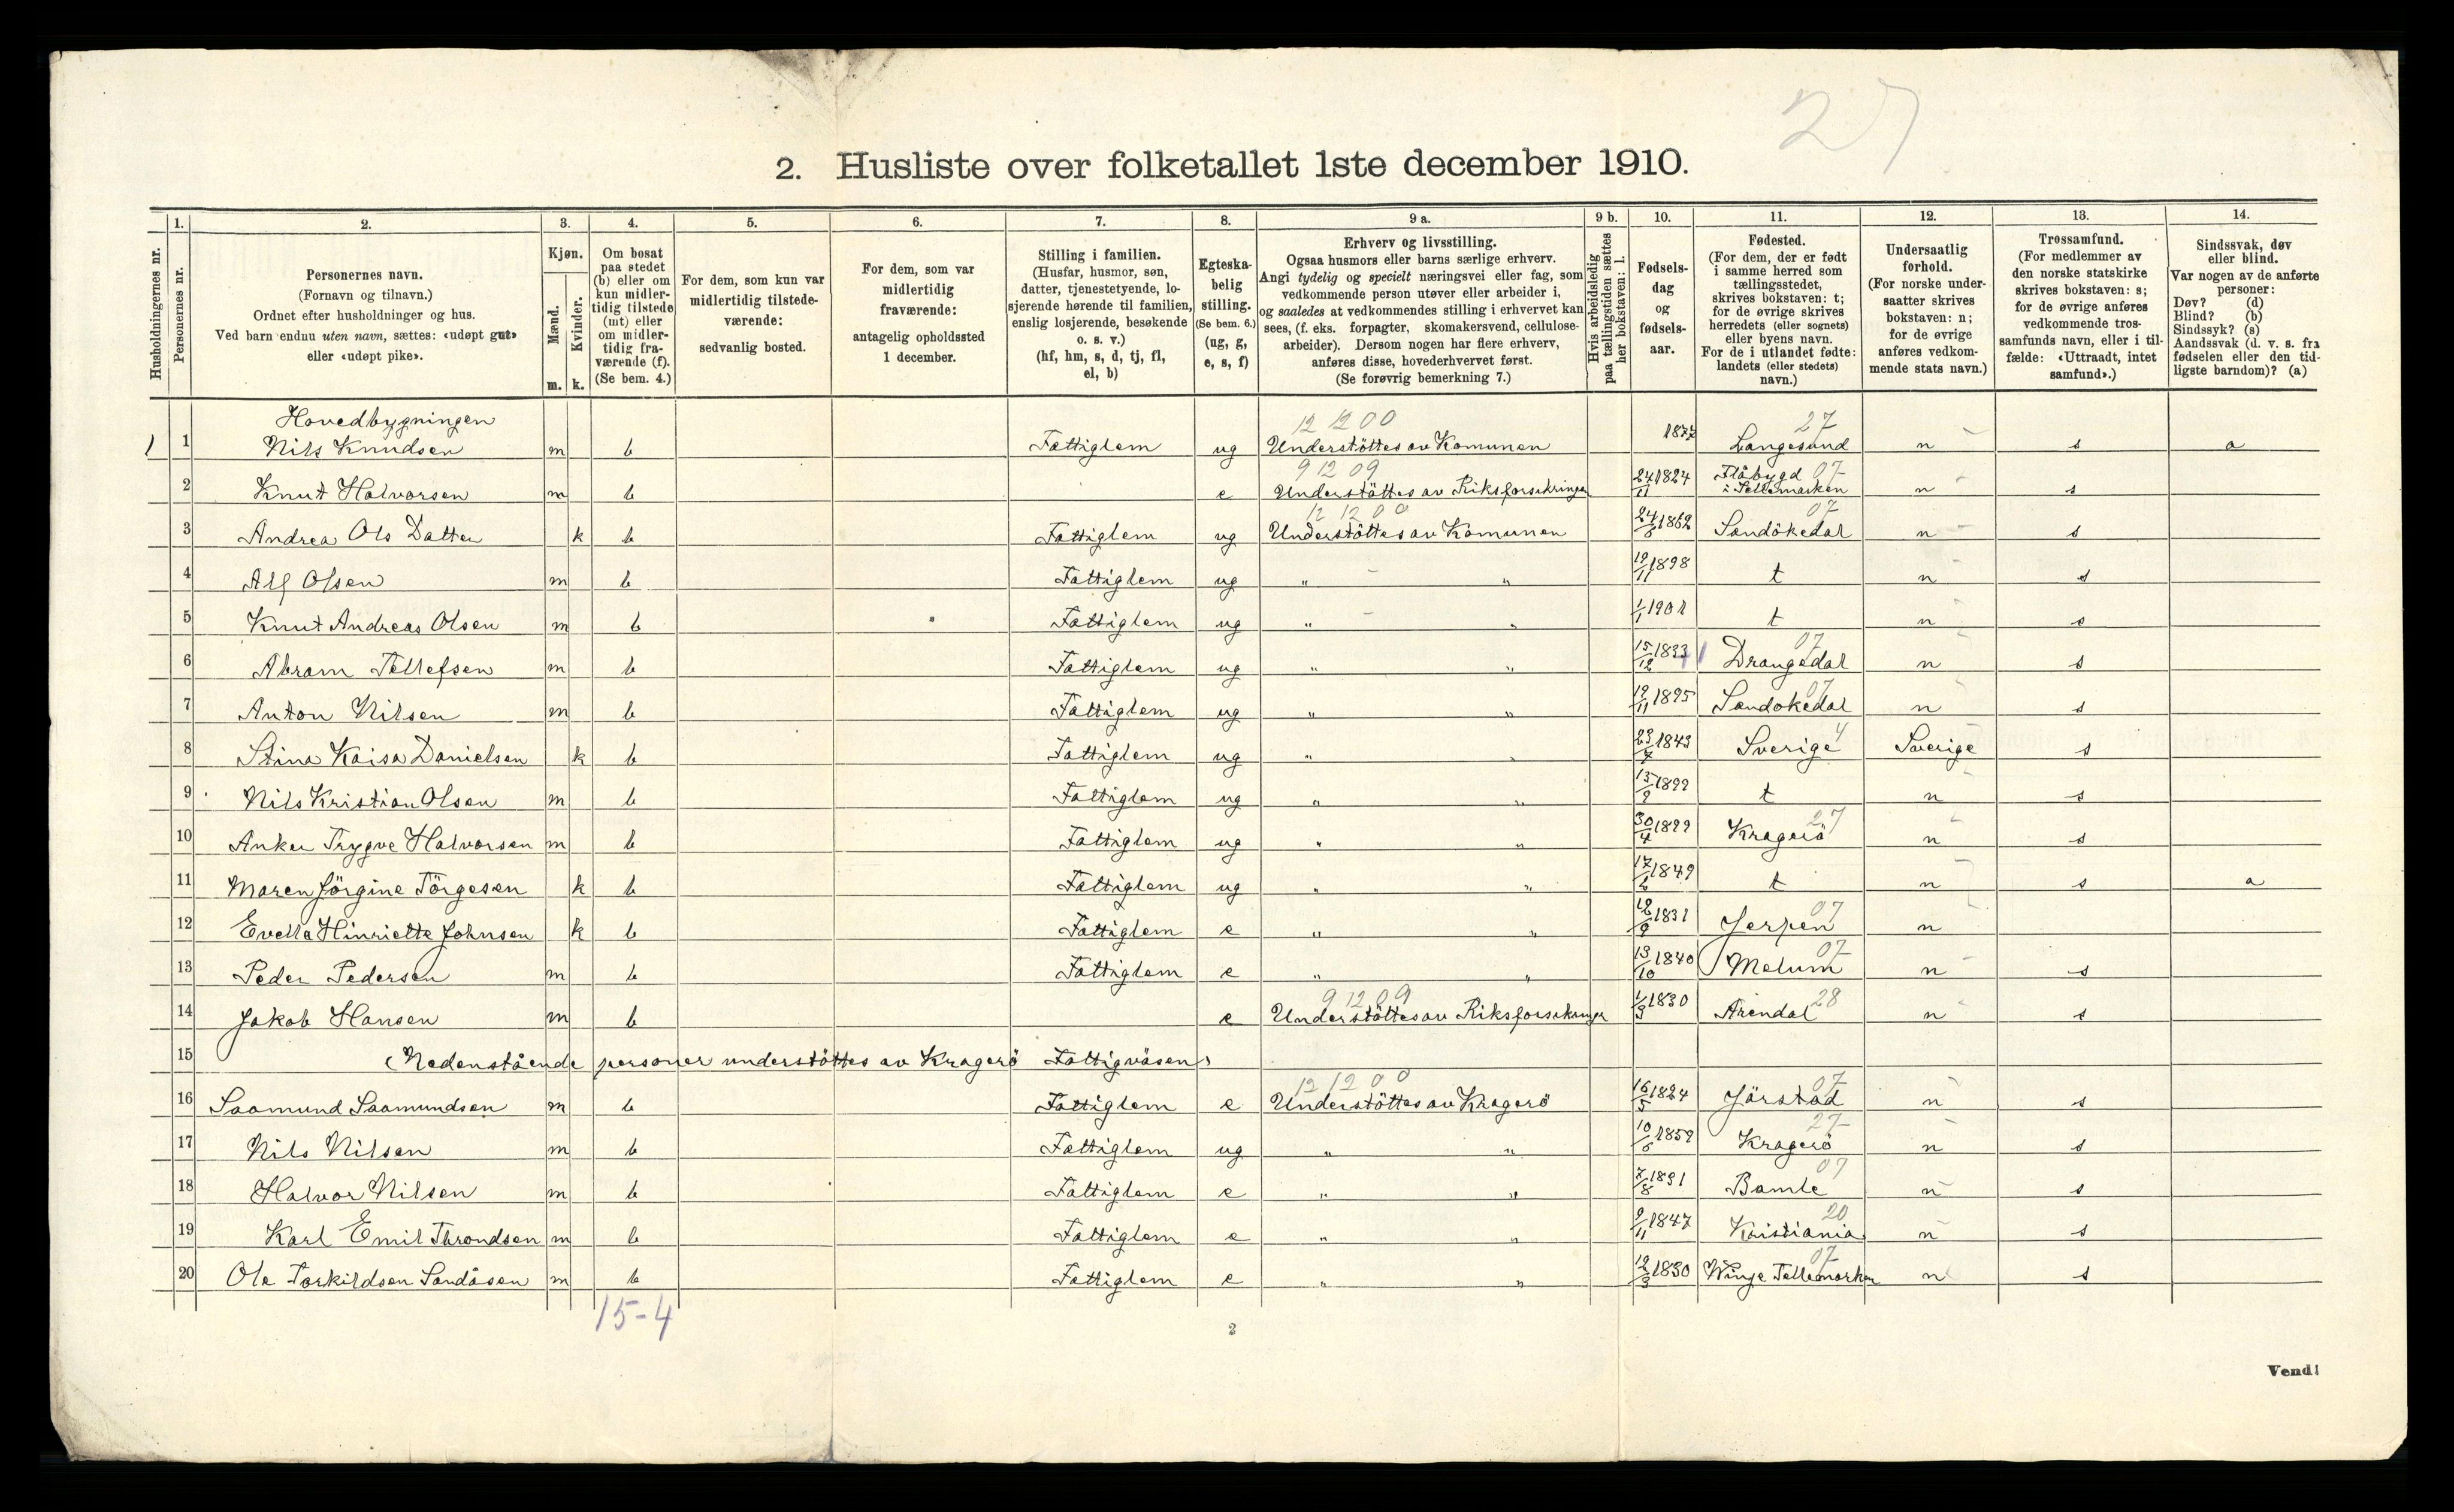 27
2. Husliste over folketallet 1ste december 1910.
Husholdningernes nr.
1.
Personernes nr.
2.
Personernes navn.
(Fornavn og tilnavn.)
Ordnet efter husholdninger og hus.
Ved barn endnu uten navn, sættes: «udøpt gut»
eller «udøpt pike».
3.
Kjøn.
Mænd.
Kvinder.
m. k.
4.
Om bosat
paa stedet
(b) eller om
kun midler-
tidig tilstede
(mt) eller
om midler-
tidig fra-
værende (f).
(Se bem. 4.)
5.
For dem, som kun var
midlertidig tilstede-
værende:
sedvanlig bosted.
6.
For dem, som var
midlertidig
fraværende:
antagelig opholdssted
1 december.
7.
Stilling i familien.
(Husfar, husmor, søn,
datter, tjenestetyende, lo-
sjerende hørende til familien,
enslig losjerende, besøkende
o. s. v.)
(hf, hm, s, d, tj, fl,
el, b)
8.
Egteska-
belig
stilling.
(Se bem. 6.)
(ug, g,
e, s, f)
9 a.
Erhverv og livsstilling.
Ogsaa husmors eller barns særlige erhverv.
Angi tydelig og specielt næringsvei eller fag, som
vedkommende person utøver eller arbeider i,
og saaledes at vedkommendes stilling i erhvervet kan
sees, (f. eks. forpagter, skomakersvend, cellulose-
arbeider). Dersom nogen har flere erhverv,
anføres disse, hovederhvervet først.
(Se forøvrig bemerkning 7.)
9 b.
Hvis arbeidsledig
paa tællingstiden sættes
her bokstaven: l.
10.
Fødsels-
dag
og
fødsels-
aar.
11.
Fødested.
(For dem, der er født
i samme herred som
tællingsstedet,
skrives bokstaven: t;
for de øvrige skrives
herredets (eller sognets)
eller byens navn.
For de i utlandet fødte:
landets (eller stedets)
navn.)
12.
Undersaatlig
forhold.
(For norske under-
saatter skrives
bokstaven: n;
for de øvrige
anføres vedkom-
mende stats navn.)
13.
Trossamfund.
(For medlemmer av
den norske statskirke
skrives bokstaven: s;
for de øvrige anføres
vedkommende tros-
samfunds navn, eller i til-
fælde: «Uttraadt, intet
samfund».)
14.
Sindssvak, døv
eller blind.
Var nogen av de anførte
personer:
Døv? (d)
Blind? (b)
Sindssyk? (s)
Aandssvak (d. v. s. fra
fødselen eller den tid-
ligste barndom)? (a)
Hovedbygningen 12 12 00 27
1 1 Nils Knudsen m b Fattiglem ug Understöttes av Komunen 1877 Langesund n s a
9 12 09 07
2 Knut Halvorsen m b e Understöttes av Riksforsikringen 24/11 1824 Flåbygd i Tellemarken n s
12 12 00 07
3 Andrea Ols Datter k b Fattiglem ug Understöttes av Komunen 24/6 1862 Sandökedal n s
4 Alf Olsen m b Fattiglem ug " " 19/11 1898 t n s
5 Knut Andreas Olsen m b Fattiglem ug " " 1/1 1901 t n s
6 Abram Tellefsen m b Fattiglem ug " " 15/12 1833 Drangedal 07 n s
7 Anton Nilsen m b Fattiglem ug " " 19/11 1895 Sandökedal 07 n s
8 Stina Kaisa Danielsen k b Fattiglem ug " " 23/7 1843 Sverige 4 Sverige s
9 Nils Kristian Olsen m b Fattiglem ug " " 15/9 1899 t n s
10 Anker Trygve Halvorsen m b Fattiglem ug " " 30/4 1899 Kragerö 27 n s
11 Maren Jörgine Törgesen k b Fattiglem ug " " 17/2 1849 t n s a
12 Evella Hinriette Johnsen k b Fattiglem e " " 19/9 1831 Jerpen 07 n
13 Peder Pedersen m b Fattiglem e " " 13/10 1840 Melum 07 n s
9 12 09
14 Jakob Hansen m b e Understöttes av Riksforsikringen 1/3 1830 Arendal 28 n s
15 (Nedenstående personer understöttes av Kragerö Fattigväsen)
12 12 00
16 Saamund Saamundsen m b Fattiglem e Understöttes av Kragerö 16/5 1824 Järstad 07 n s
17 Nils Nilsen m b Fattiglem ug " " 10/6 1859 Kragerö 27 n s
18 Halvor Nilsen m b Fattiglem e " " 7/8 1831 Bamle 07 n s
19 Karl Emil Throndsen m b Fattiglem e " " 9/11 1847 Kristiania 20 n s
20 Ole Torkildsen Sandåsen m b Fattiglem e " " 19/3 1830 Winje Tellemarken 07 n s
15-4
2
Vend!